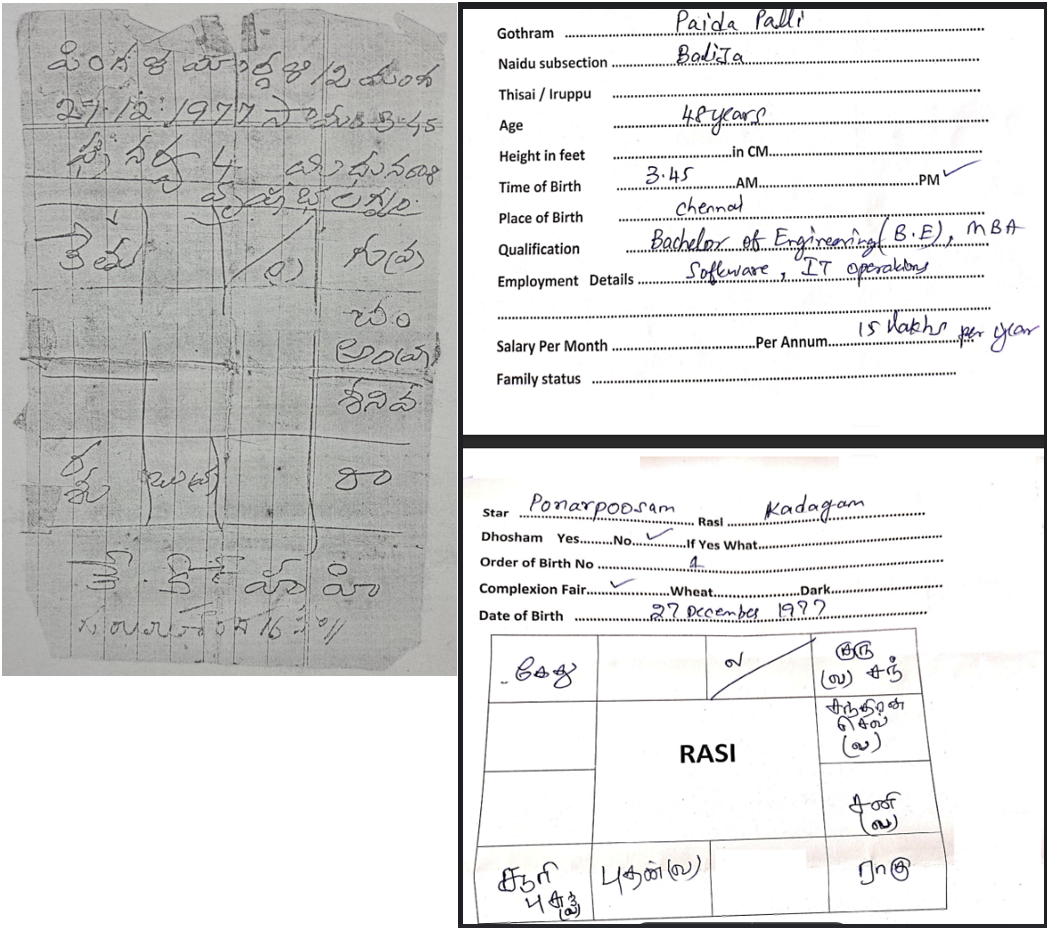 పింగళ మార్గళి 12 మంగ
27.12.1977 సా మం 3-45
పునర్వ 4 మిధునరాశి
వృషభ లగ్నం
కేతు
ల
గు(వ)
చం
అం(వ)
శనివ
ర
శు
బు(వ)
రా
కే కో హా హి
Gothram Paida Palli
Naidu subsection Badija
Thisai / Iruppu
Age 48 years
Height in feet in CM
Time of Birth 3.45 AM PM ✓
Place of Birth Chennai
Qualification Bachelor of Engineering (B.E), MBA
Employment Details Software, IT operations
Salary Per Month Per Annum 15 lakhs per year
Family status
Star Ponarpoosam Rasi Kadagam
Dhosham Yes No ✓ If Yes What
Order of Birth No 1
Complexion Fair ✓ Wheat Dark
Date of Birth 27 December 1977
கேது
ல
குரு
(வ) சந்
சந்திரன்
செவ்
(வ)
RASI
சனி
(வ)
சூரி
சுக்
(வ)
புதன்(வ)
ராகு